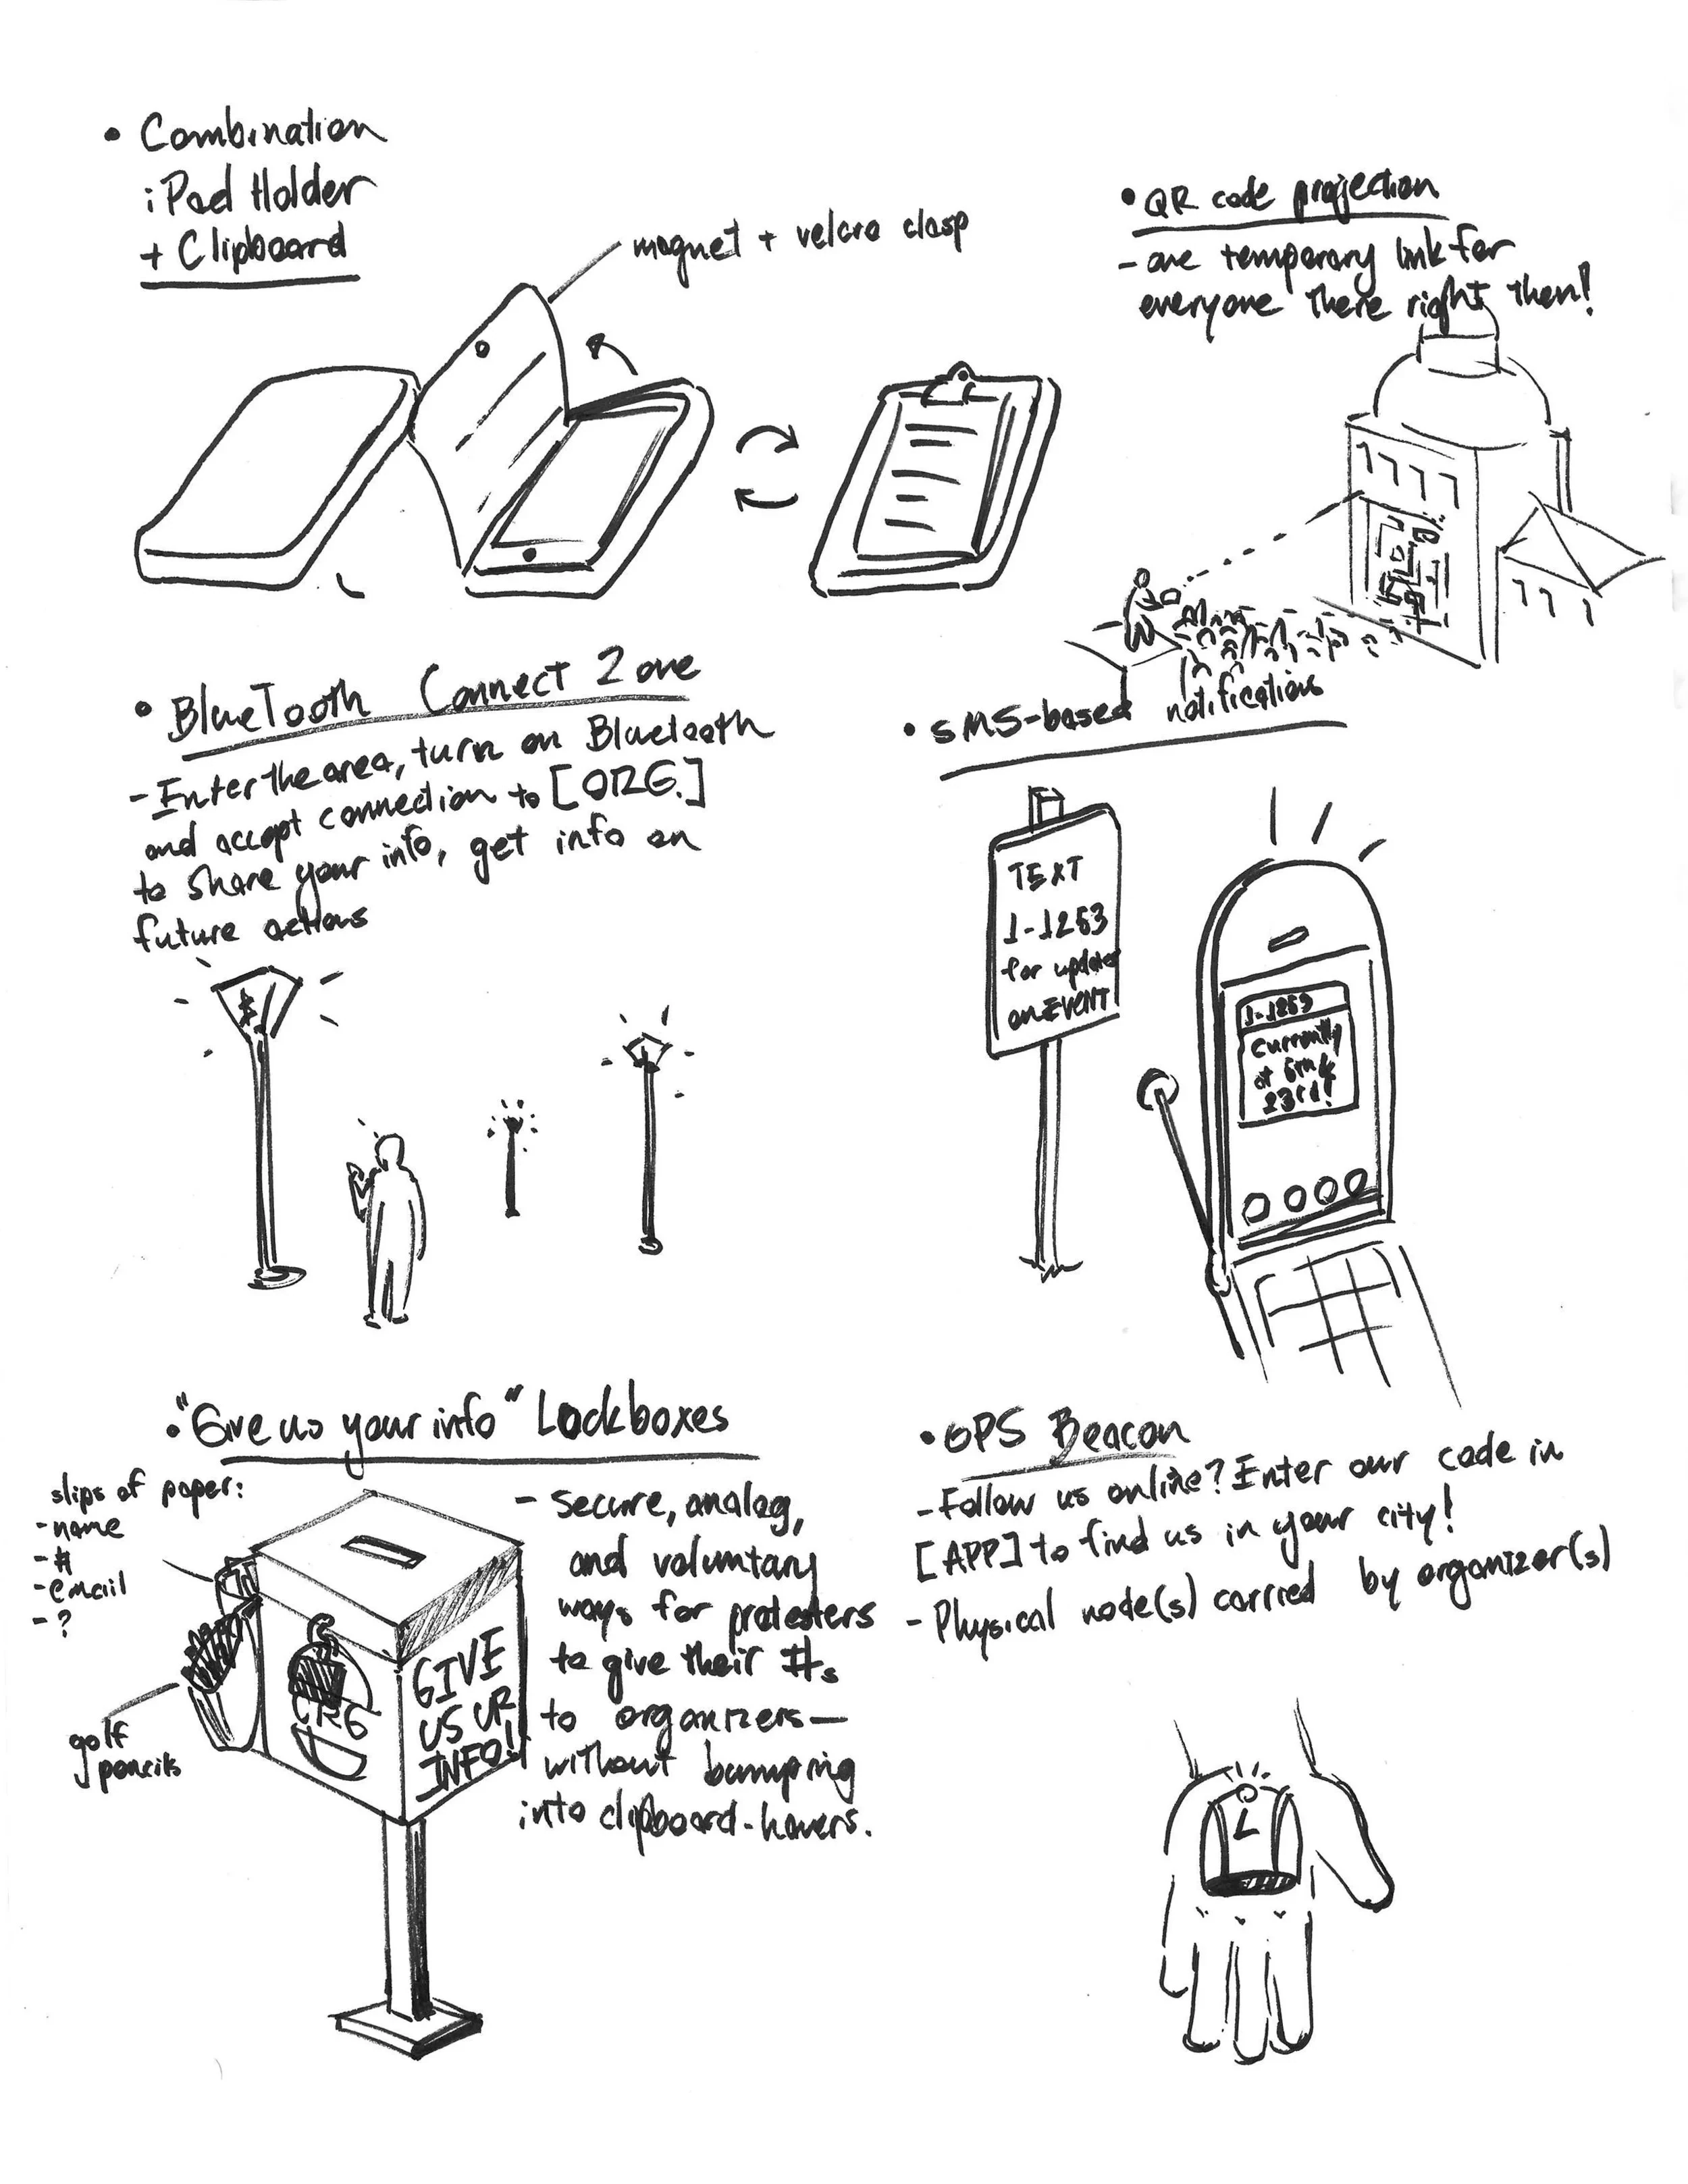 • Combination
iPad Holder
+ Clipboard
magnet + velcro clasp
• QR code projection
- one temporary link for
everyone there right then!
• BlueTooth Connect Zone
- Enter the area, turn on Bluetooth
and accept connection to [ORG.]
to share your info, get info on
future actions
• SMS-based notifications
TEXT
1-1253
for updates
on EVENT
1-1253
currently
at 5th &
23rd!
• "Give us your info" Lockboxes
slips of paper:
- name
- #
- email
- ?
golf
pencils
ORG
GIVE
US UR
INFO!
- secure, analog,
and voluntary
ways for protesters
to give their #s
to organizers—
without bumping
into clipboard-havers.
• GPS Beacon
- Follow us online? Enter our code in
[APP] to find us in your city!
- Physical node(s) carried by organizer(s)